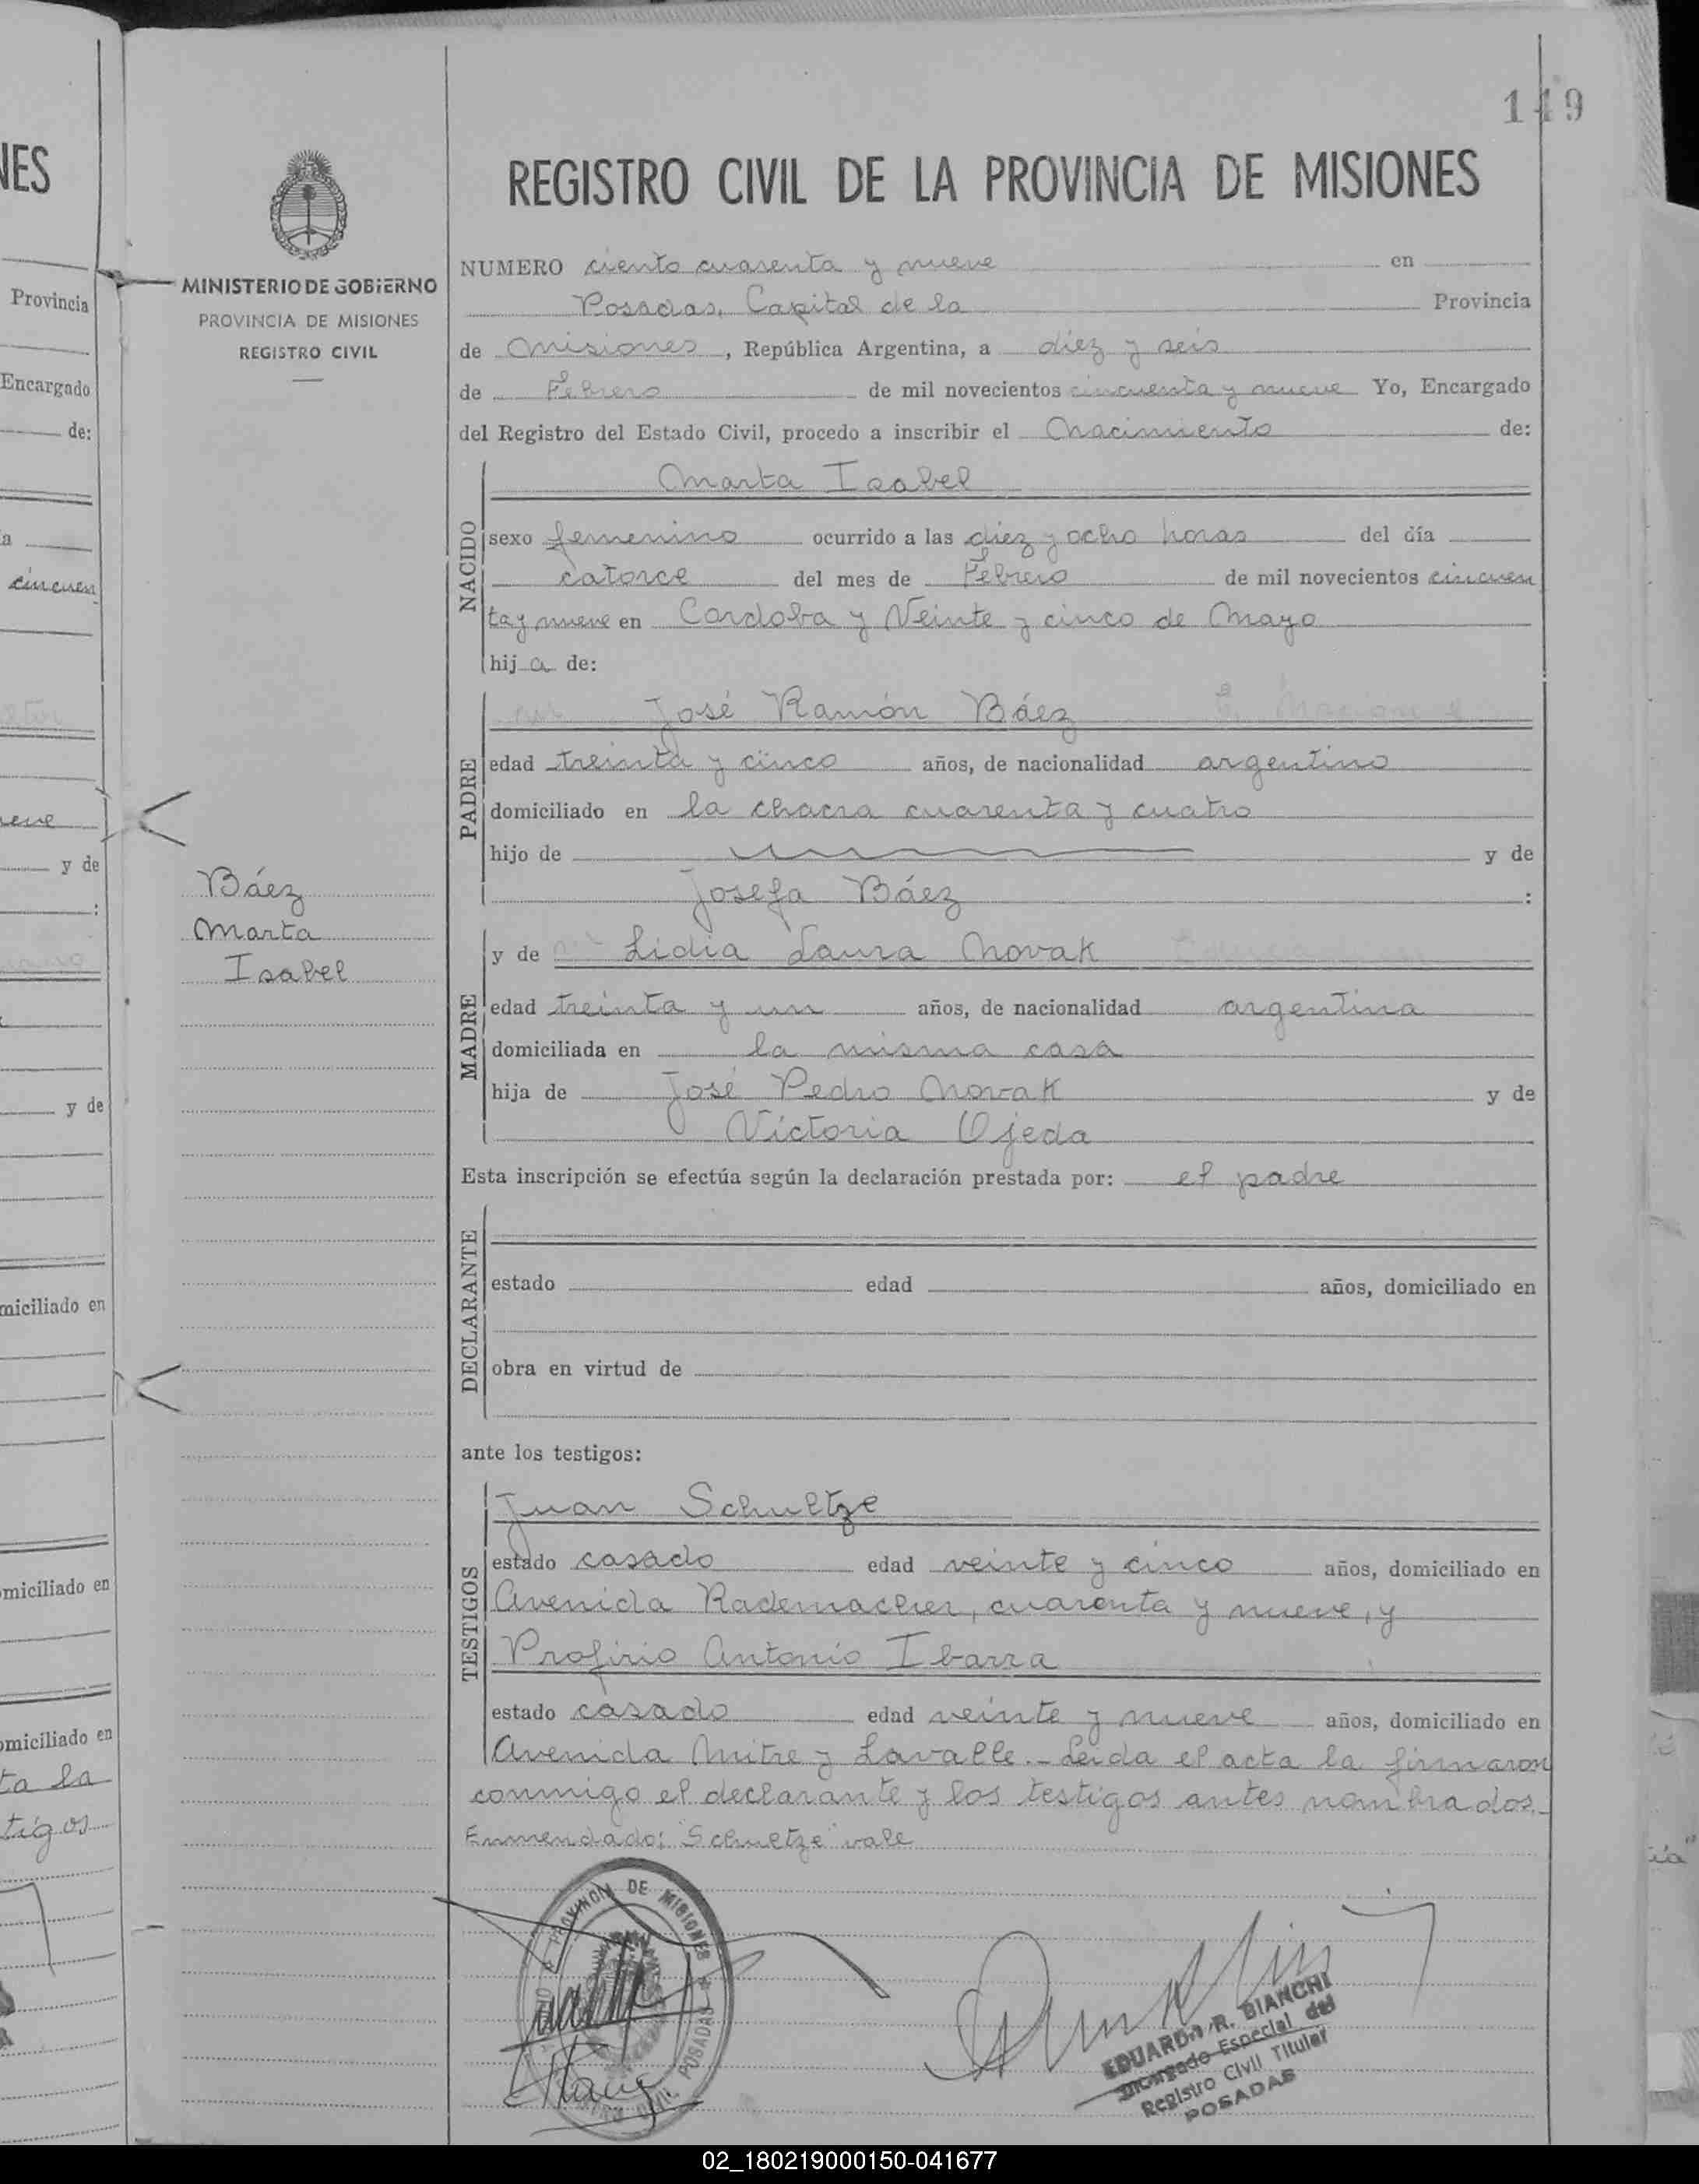 149
REGISTRO CIVIL DE LA PROVINCIA DE MISIONES
MINISTERIO DE GOBIERNO
PROVINCIA DE MISIONES
REGISTRO CIVIL
NUMERO ciento cuarenta y nueve en
Posadas, Capital de la Provincia
de Misiones, República Argentina, a diez y seis
de Febrero de mil novecientos cincuenta y nueve Yo, Encargado
del Registro del Estado Civil, procedo a inscribir el Nacimiento de:
NACIDO
Marta Isabel
sexo femenino ocurrido a las diez y ocho horas del día
catorce del mes de Febrero de mil novecientos cincuen
ta y nueve en Cordoba y Veinte y cinco de Mayo
hija de:
PADRE
José Ramón Báez
edad treinta y cinco años, de nacionalidad argentino
domiciliado en la chacra cuarenta y cuatro
hijo de y de
Josefa Báez :
Báez
Marta
Isabel
MADRE
y de Lidia Laura Novak
edad treinta y un años, de nacionalidad argentina
domiciliada en la misma casa
hija de José Pedro Novak y de
Victoria Ojeda
Esta inscripción se efectúa según la declaración prestada por: el padre
DECLARANTE
estado edad años, domiciliado en
obra en virtud de
ante los testigos:
TESTIGOS
Juan Schultze
estado casado edad veinte y cinco años, domiciliado en
Avenida Rademacher, cuarenta y nueve, y
Profirio Antonio Ibarra
estado casado edad veinte y nueve años, domiciliado en
Avenida Mitre y Lavalle.- Leida el acta la firmaron
conmigo el declarante y los testigos antes nombrados.-
Enmendado: "Schultze" vale
PROVINCIA DE MISIONES
POSADAS
EDUARDO R. BIANCHI
Encargado Especial del
Registro Civil Titular
POSADAS
NES
Provincia
Encargado
de:
cincuen
y de
y de
miciliado en
omiciliado en
omiciliado en
ta la
tigos
02_180219000150-041677